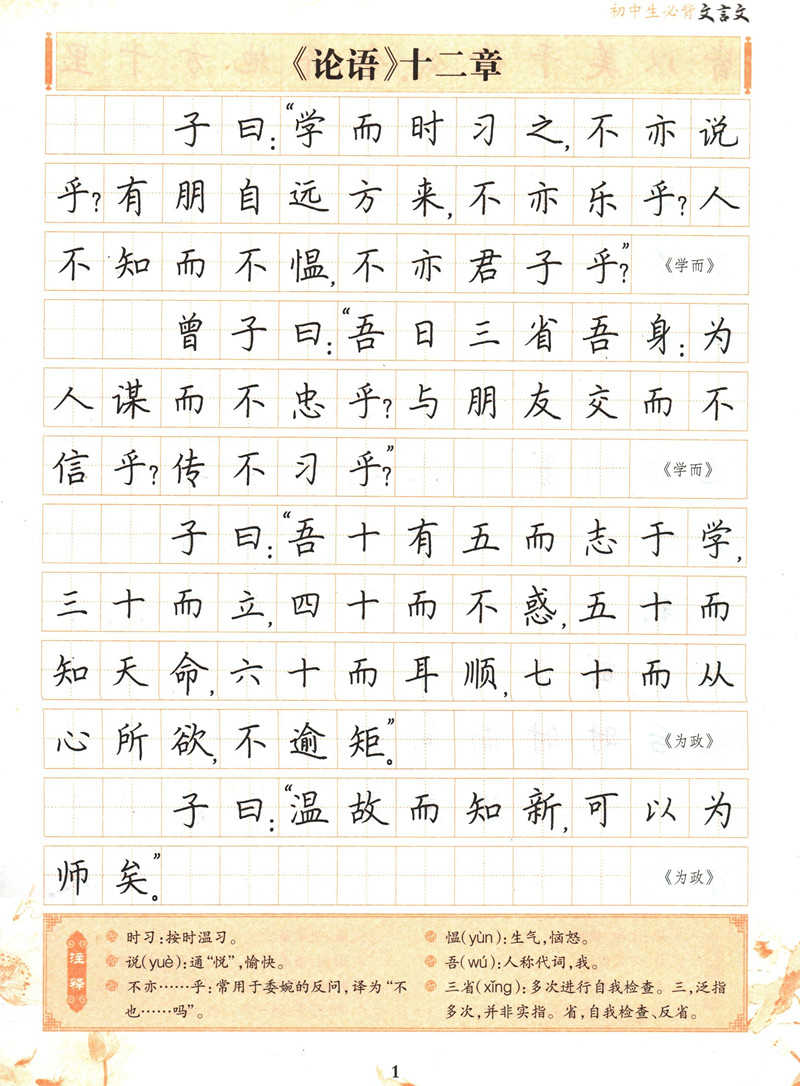 初中生必背文言文
《论语》十二章
子曰：“学而时习之，不亦说
乎？有朋自远方来，不亦乐乎？人
不知而不愠，不亦君子乎？”《学而》
曾子曰：“吾日三省吾身：为
人谋而不忠乎？与朋友交而不
信乎？传不习乎？”《学而》
子曰：“吾十有五而志于学，
三十而立，四十而不惑，五十而
知天命，六十而耳顺，七十而从
心所欲，不逾矩。”《为政》
子曰：“温故而知新，可以为
师矣。”《为政》
注释
时习：按时温习。
说(yuè)：通“悦”，愉快。
不亦……乎：常用于委婉的反问，译为“不
也……吗”。
愠(yùn)：生气，恼怒。
吾(wú)：人称代词，我。
三省(xǐng)：多次进行自我检查。三，泛指
多次，并非实指。省，自我检查、反省。
1